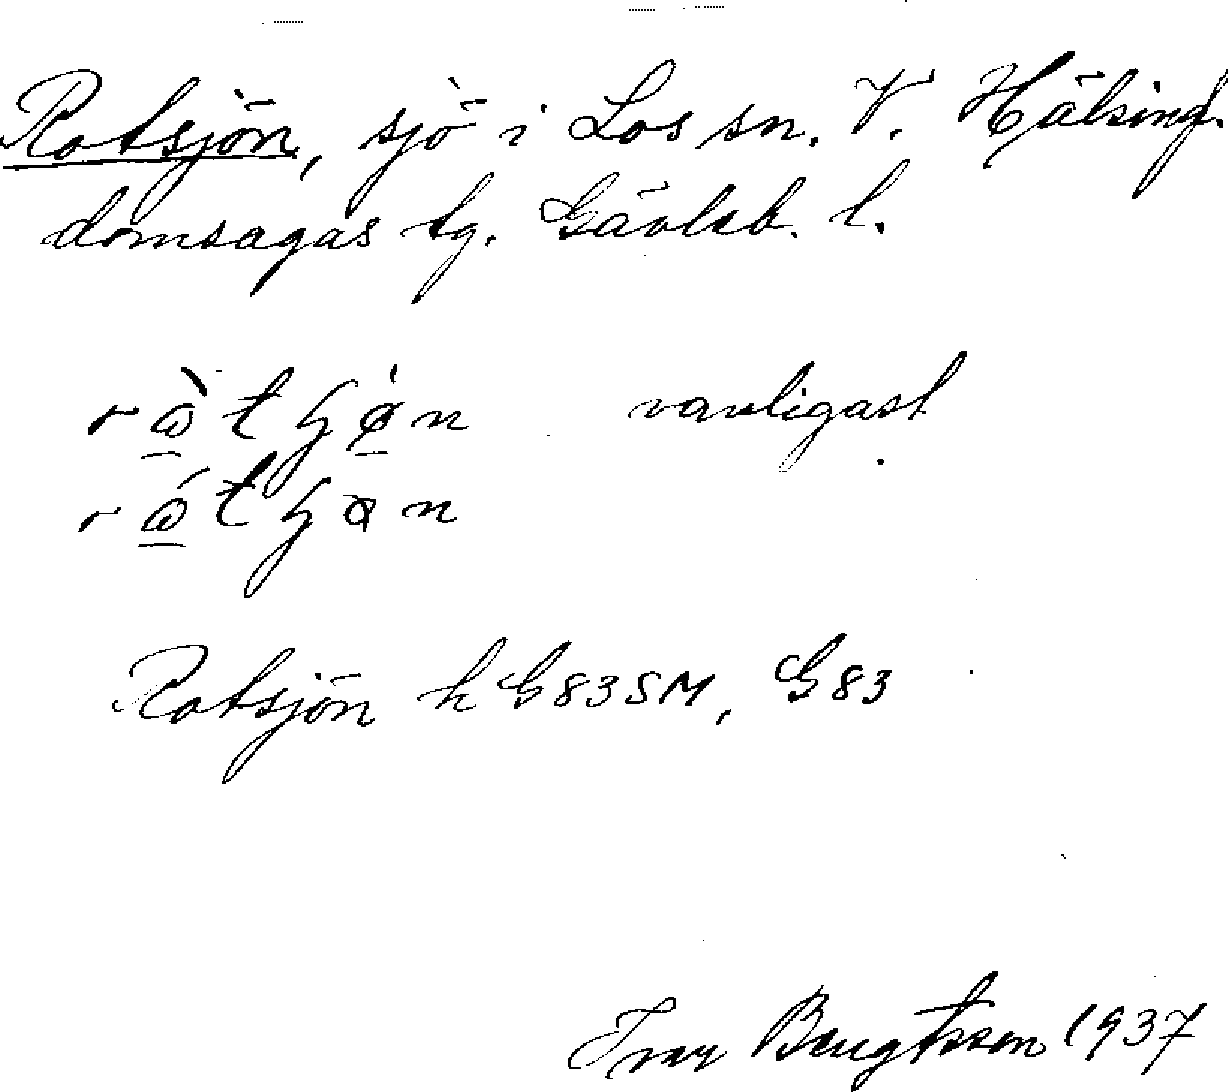 Rotsjön, sjö i Los sn. V. Hälsing.
domsagas tg. Gävleb. l.
vanligast
Rotsjön k G83SM, G83
Ivar Bengtsson 1937